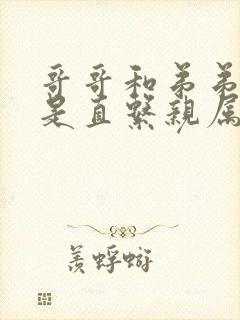 哥哥和弟弟
是直繫親屬
羨蜉蝣